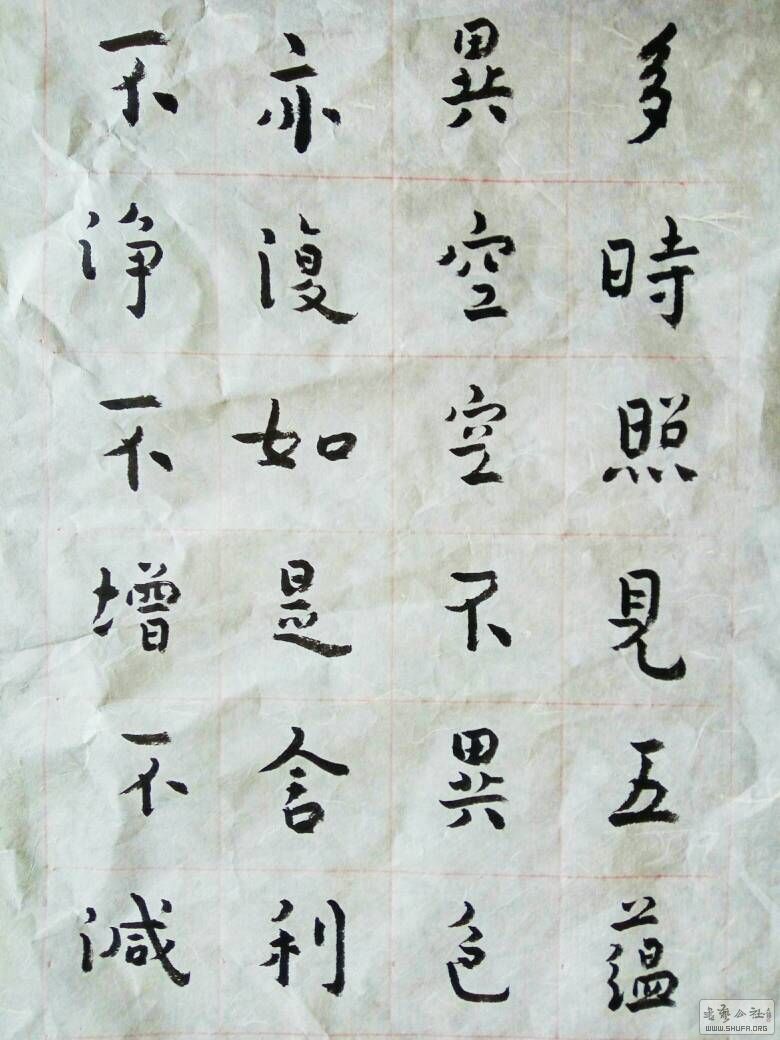 多時照見五蘊
異空空不異色
亦復如是舍利
不淨不增不減
書藝公社
WWW.SHUFA.ORG